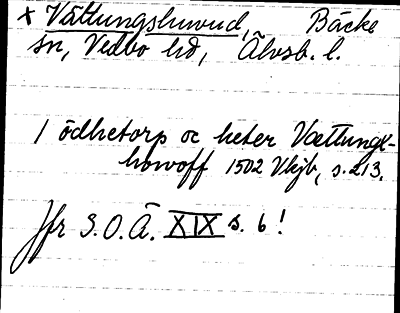 x Vättungshuvud, Bäcke
sn, Vedbo hd, Älvsb. l.
1 ödhetorp oc heter Vættungx-
howoff 1502 Vkjb, s. 213.
Jfr S.O.Ä. XIX s. 6!